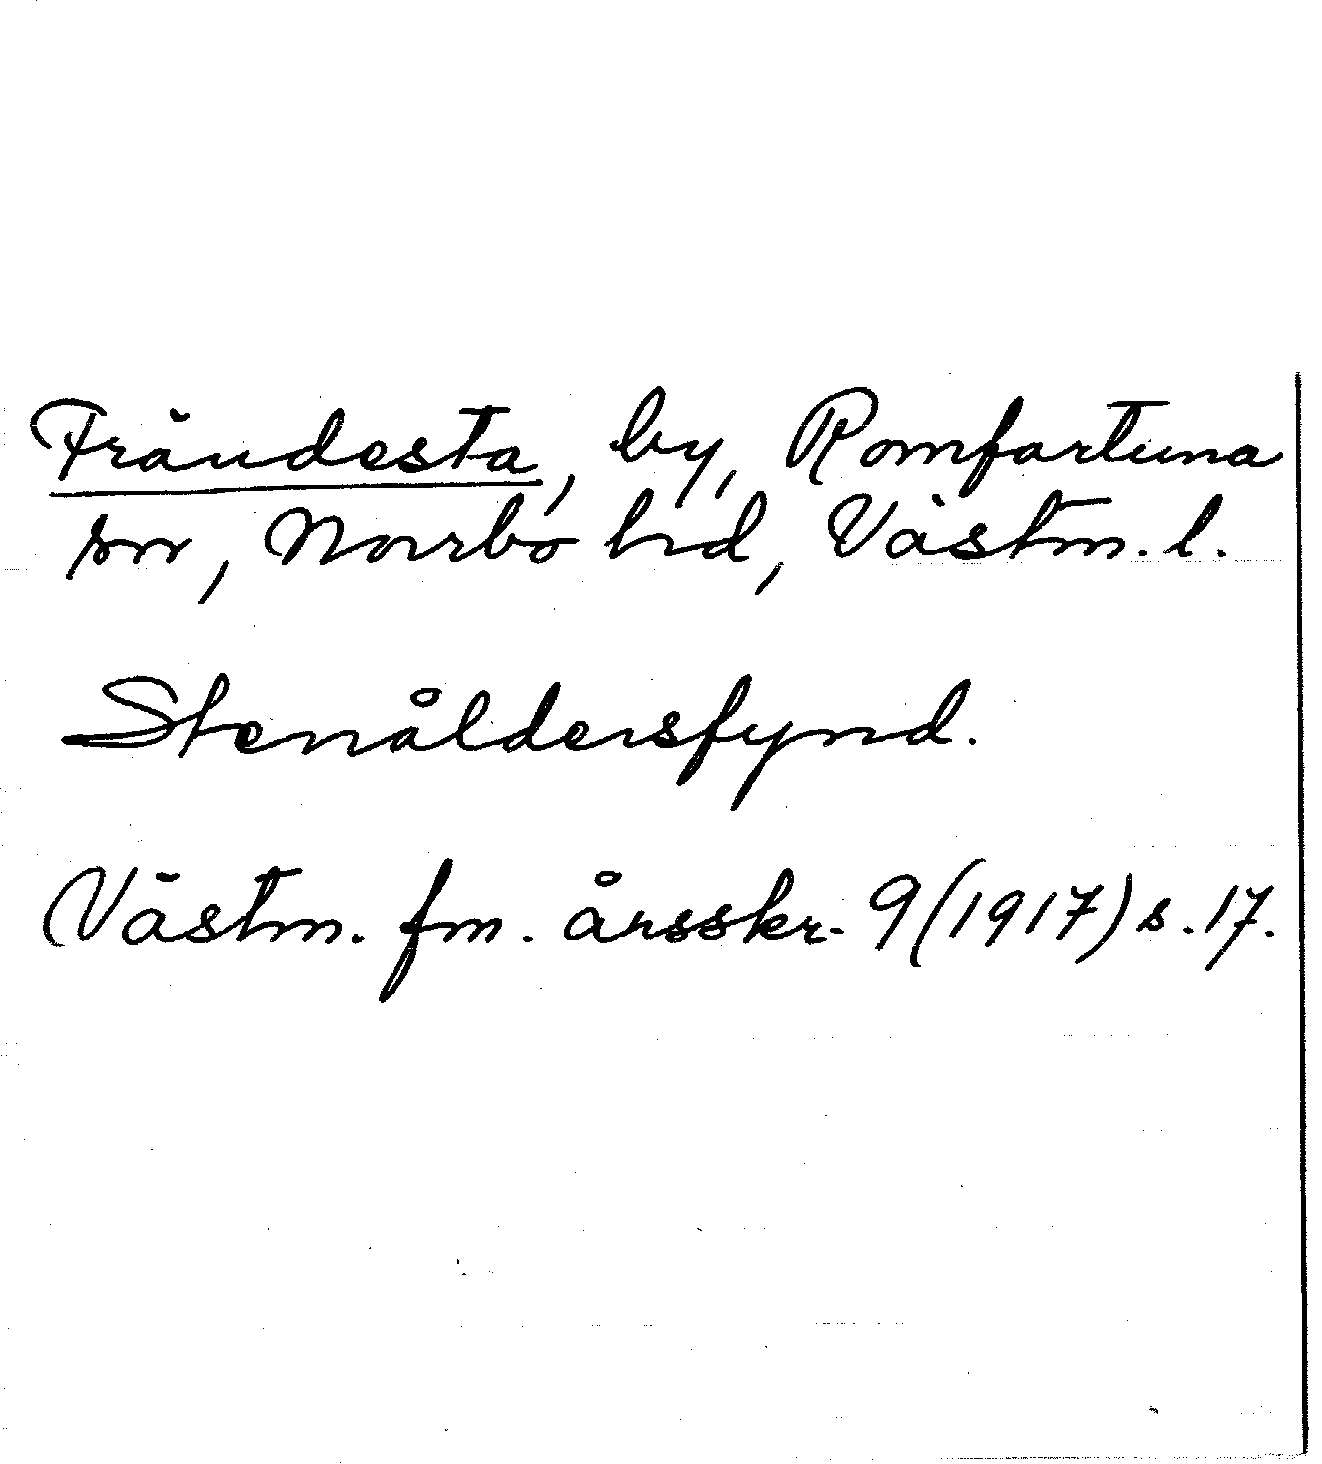 Frändesta, by, Romfartuna
sn, Norrbo hd, Västm. l.
Stenåldersfynd.
Västm. fm. årsskr. 9 (1917) s. 17.